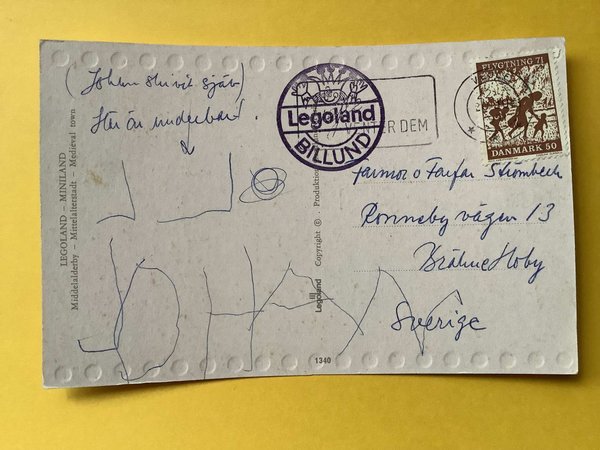 (Johan skrivit själv)
Här är
JOHAN
LEGOLAND – MINILAND
Middelalderby – Mittelalterstadt – Medieval town
Legoland
BILLUND
VENTER DEM
FLYGTNING 71
DANMARK 50
Legoland Copyright © . Produktion
1340
Farmor o Farfar Strömbeck
Ronneby vägen 13
Bräkne Hoby
Sverige